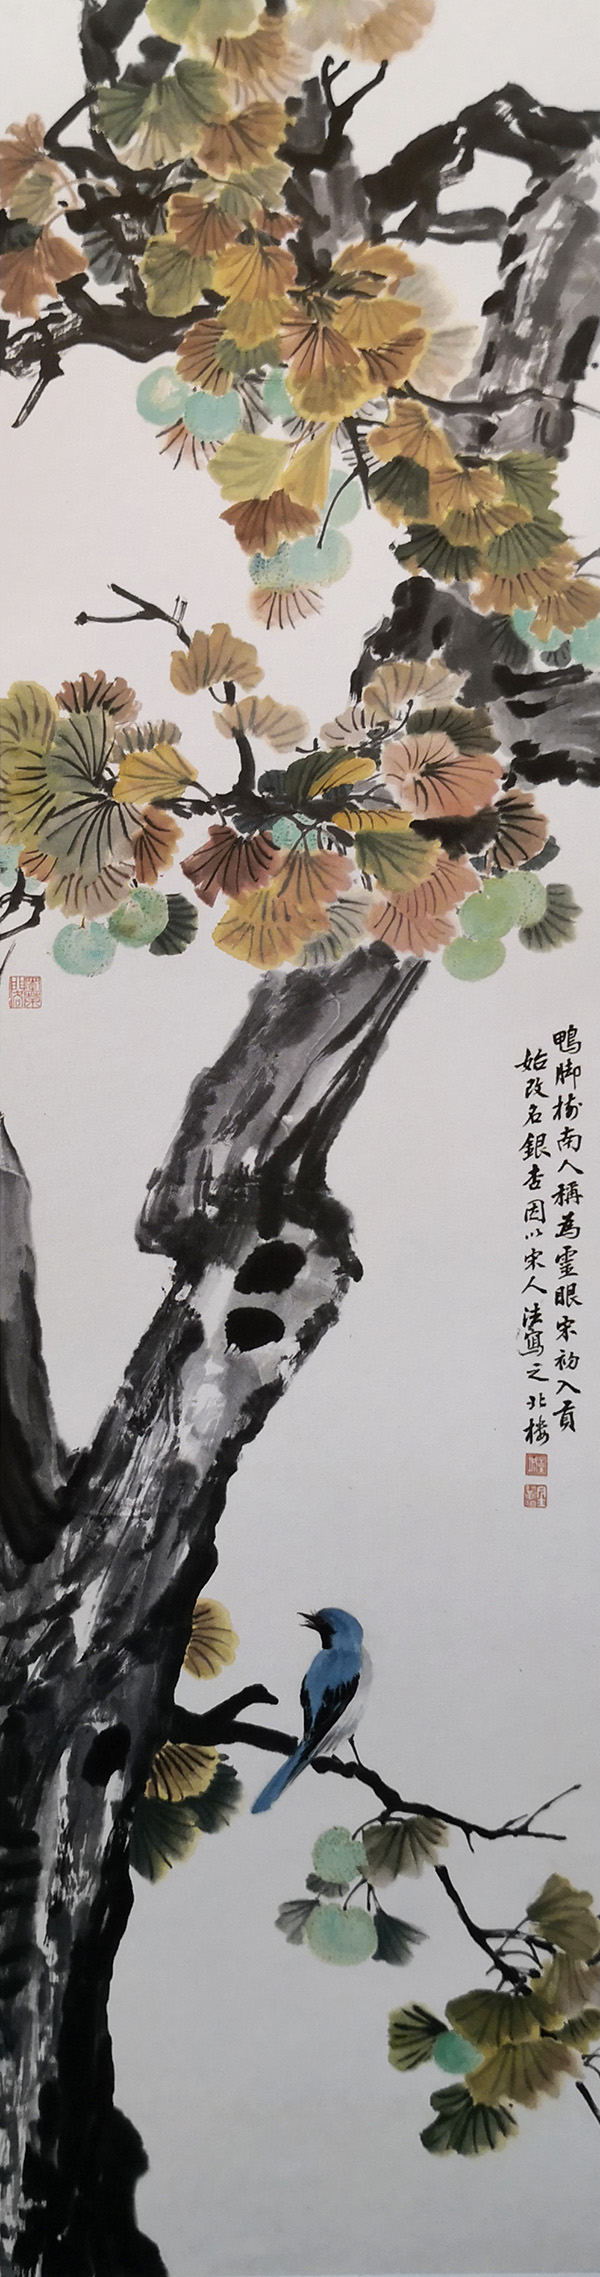 鴨脚樹南人稱為靈眼宋初入貢
始改名銀杏因以宋人法寫之北樓